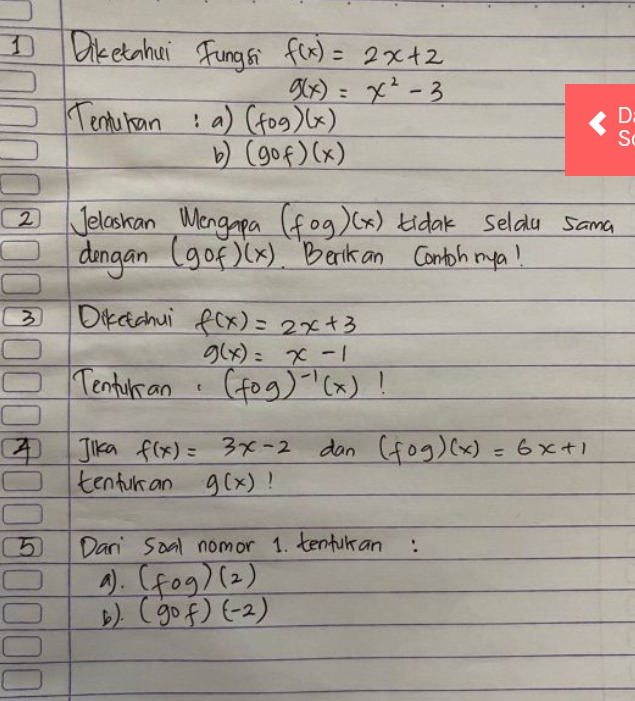 1 Diketahui Fungsi f(x) = 2x+2
g(x) = x² - 3
Tentukan : a) (fog)(x)
b) (gof)(x)
2 Jelaskan Mengapa (fog)(x) tidak selalu sama
dengan (gof)(x). Berikan Contohnya!
3 Diketahui f(x) = 2x+3
g(x) = x - 1
Tentukan : (fog)⁻¹(x) !
4 Jika f(x) = 3x-2 dan (fog)(x) = 6x+1
tentukan g(x) !
5 Dari soal nomor 1. tentukan :
a). (fog)(2)
b). (gof)(-2)